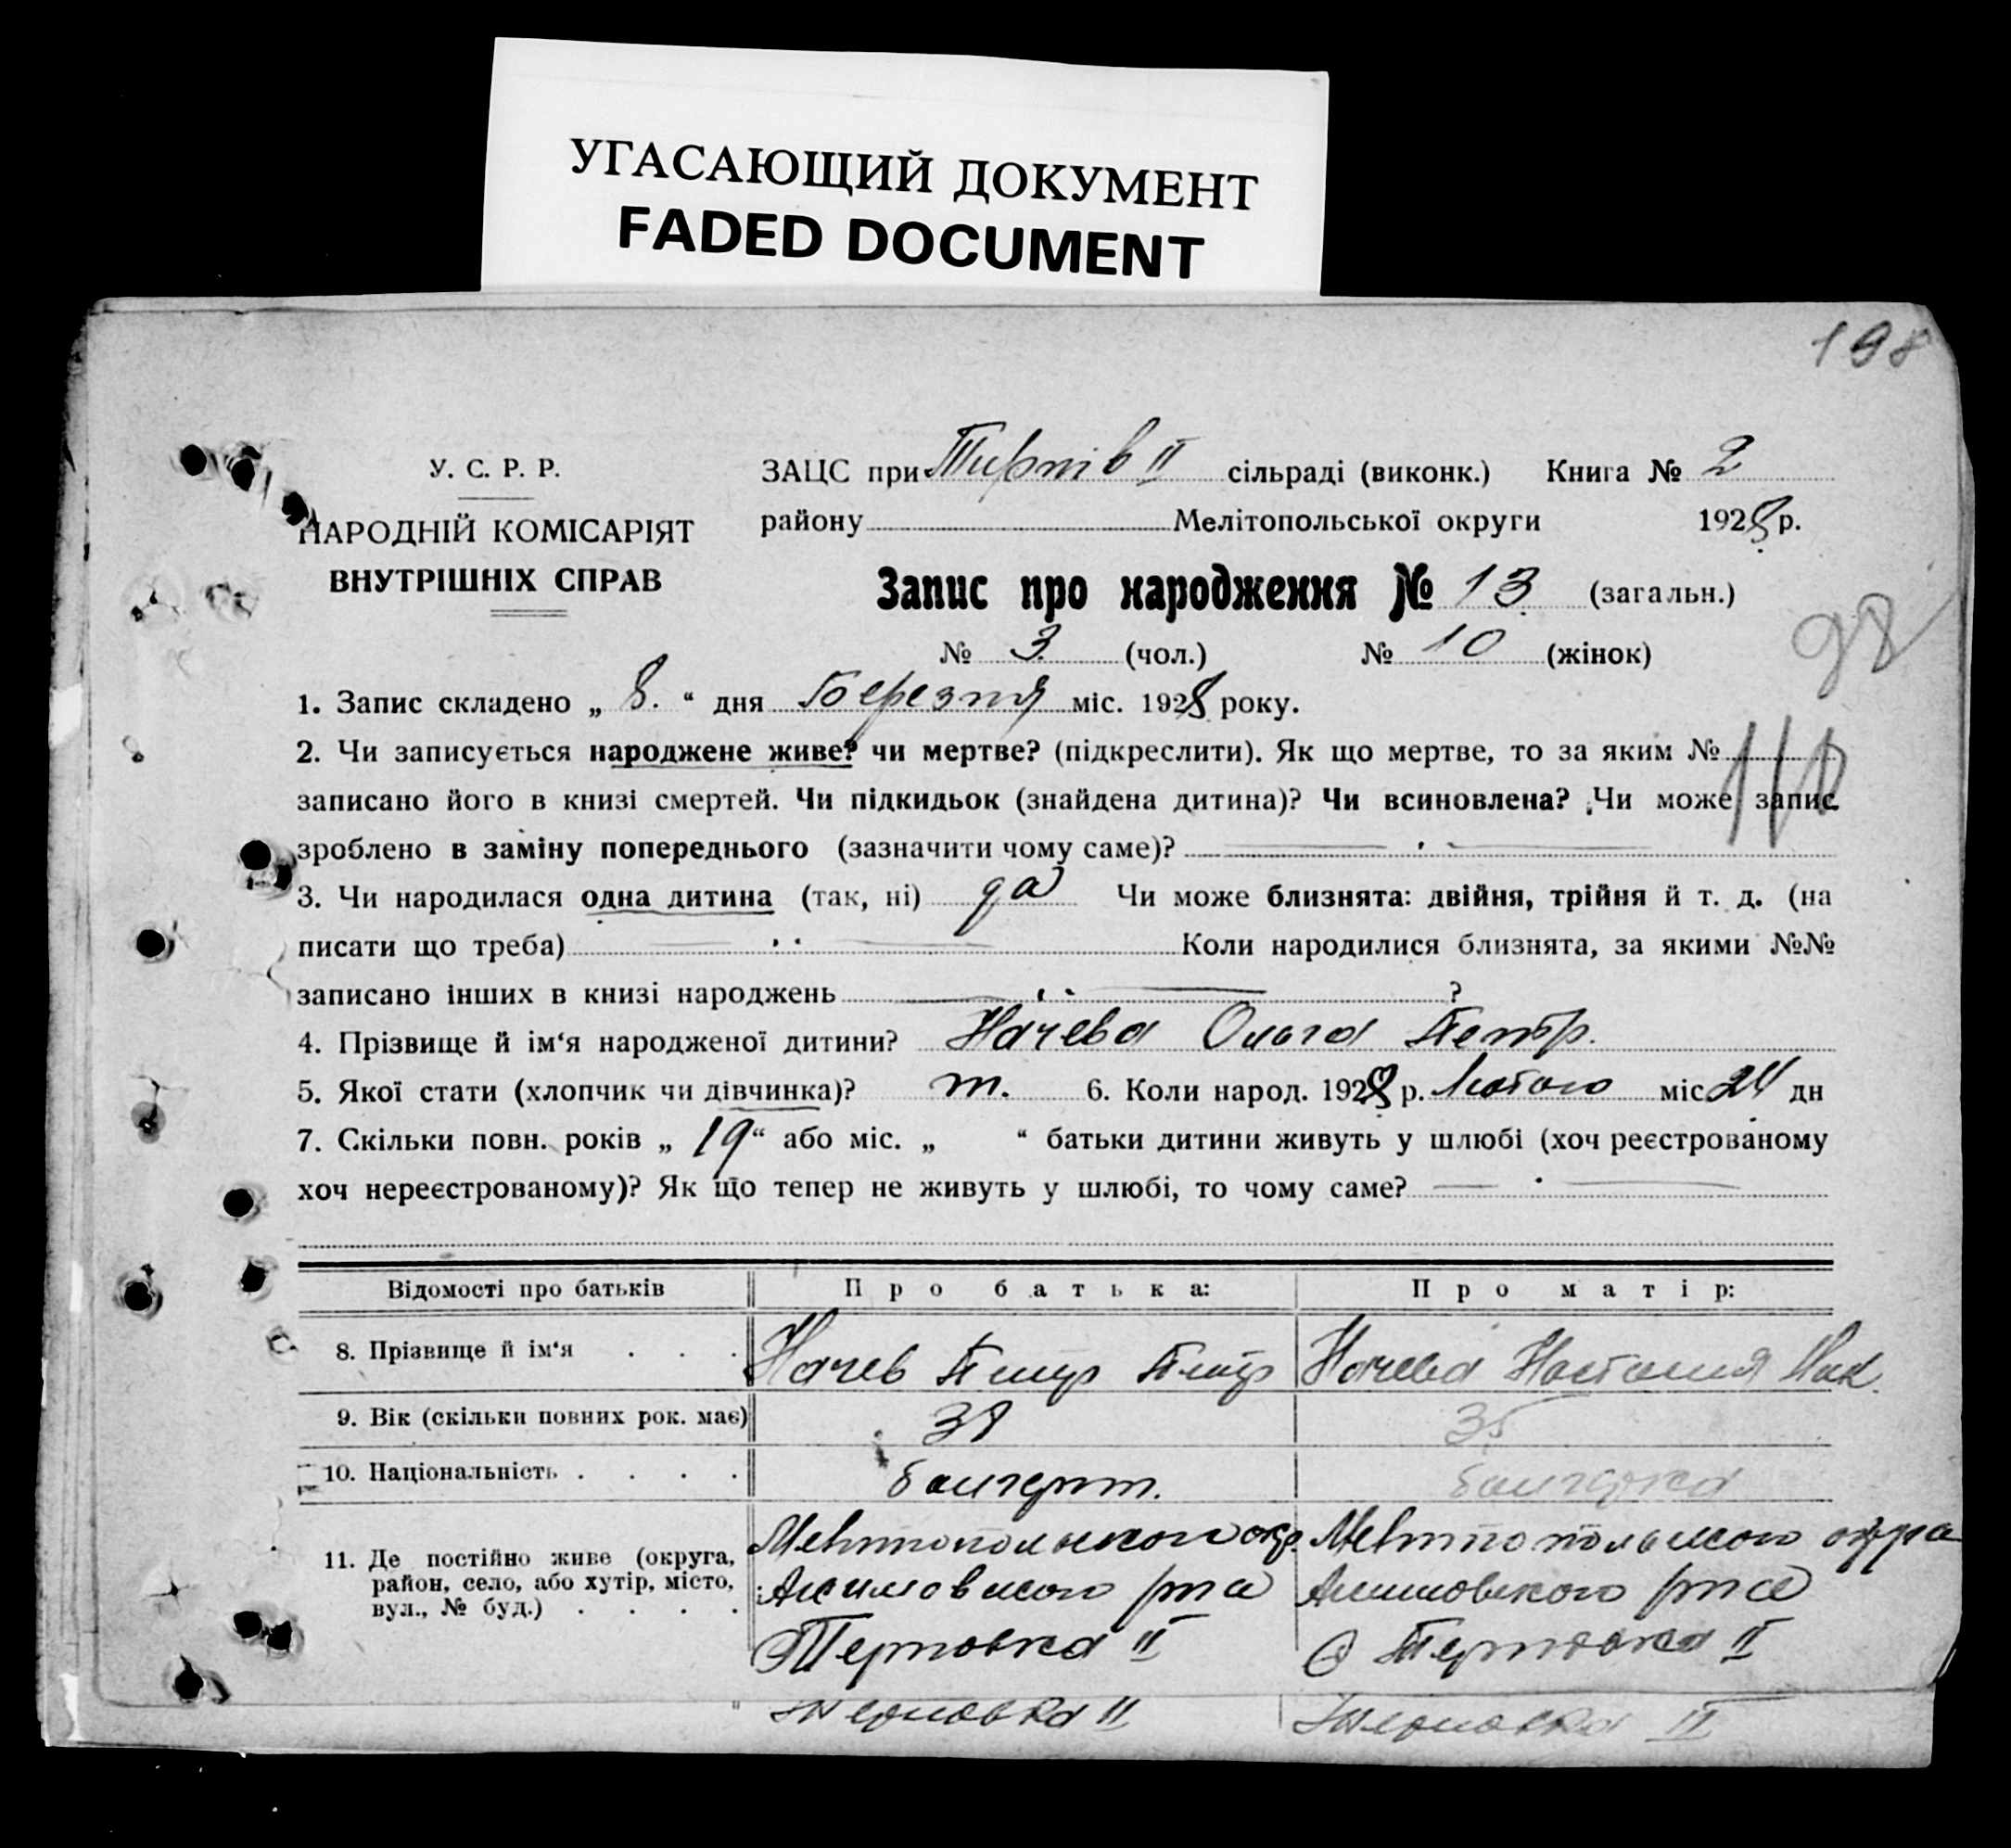 УГАСАЮЩИЙ ДОКУМЕНТ
FADED DOCUMENT
198
У. С. Р. Р.
НАРОДНІЙ КОМІСАРІЯТ
ВНУТРІШНІХ СПРАВ
ЗАЦС при II сільраді (виконк.) Книга № 2
району Мелітопольської округи 1928 р.
Запис про народження № 13 (загальн.)
№ 3 (чол.) № 10 (жінок)
98
1. Запис складено „ 8. “ дня Березня міс. 1928 року.
2. Чи записується народжене живе? чи мертве? (підкреслити). Як що мертве, то за яким №
записано його в книзі смертей. Чи підкидьок (знайдена дитина)? Чи всиновлена? Чи може запис
зроблено в заміну попереднього (зазначити чому саме)?
3. Чи народилася одна дитина (так, ні) да Чи може близнята: двійня, трійня й т. д. (на
писати що треба) Коли народилися близнята, за якими №№
записано інших в книзі народжень ?
4. Прізвище й ім‘я народженої дитини? Начева Ольга Петр.
5. Якої стати (хлопчик чи дівчинка)? 6. Коли народ. 1928 р. Лютого міс 24 дн
7. Скільки повн. років „ 19 “ або міс. „ “ батьки дитини живуть у шлюбі (хоч реєстрованому
хоч нереєстрованому)? Як що тепер не живуть у шлюбі, то чому саме?
Відомості про батьків Про батька: Про матір:
8. Прізвище й ім‘я . . . Начев Петр Петр Начева Настасия
9. Вік (скільки повних рок. має) 35
10. Національність . . . . болгарка
11. Де постійно живе (округа,
район, село, або хутір, місто,
вул., № буд.) . . . .
Мелитопольского окр. Мелитопольского округа
Акимовского р-на Акимовского р-на
Терновка II с Терновка II
Терновка II Терновка II